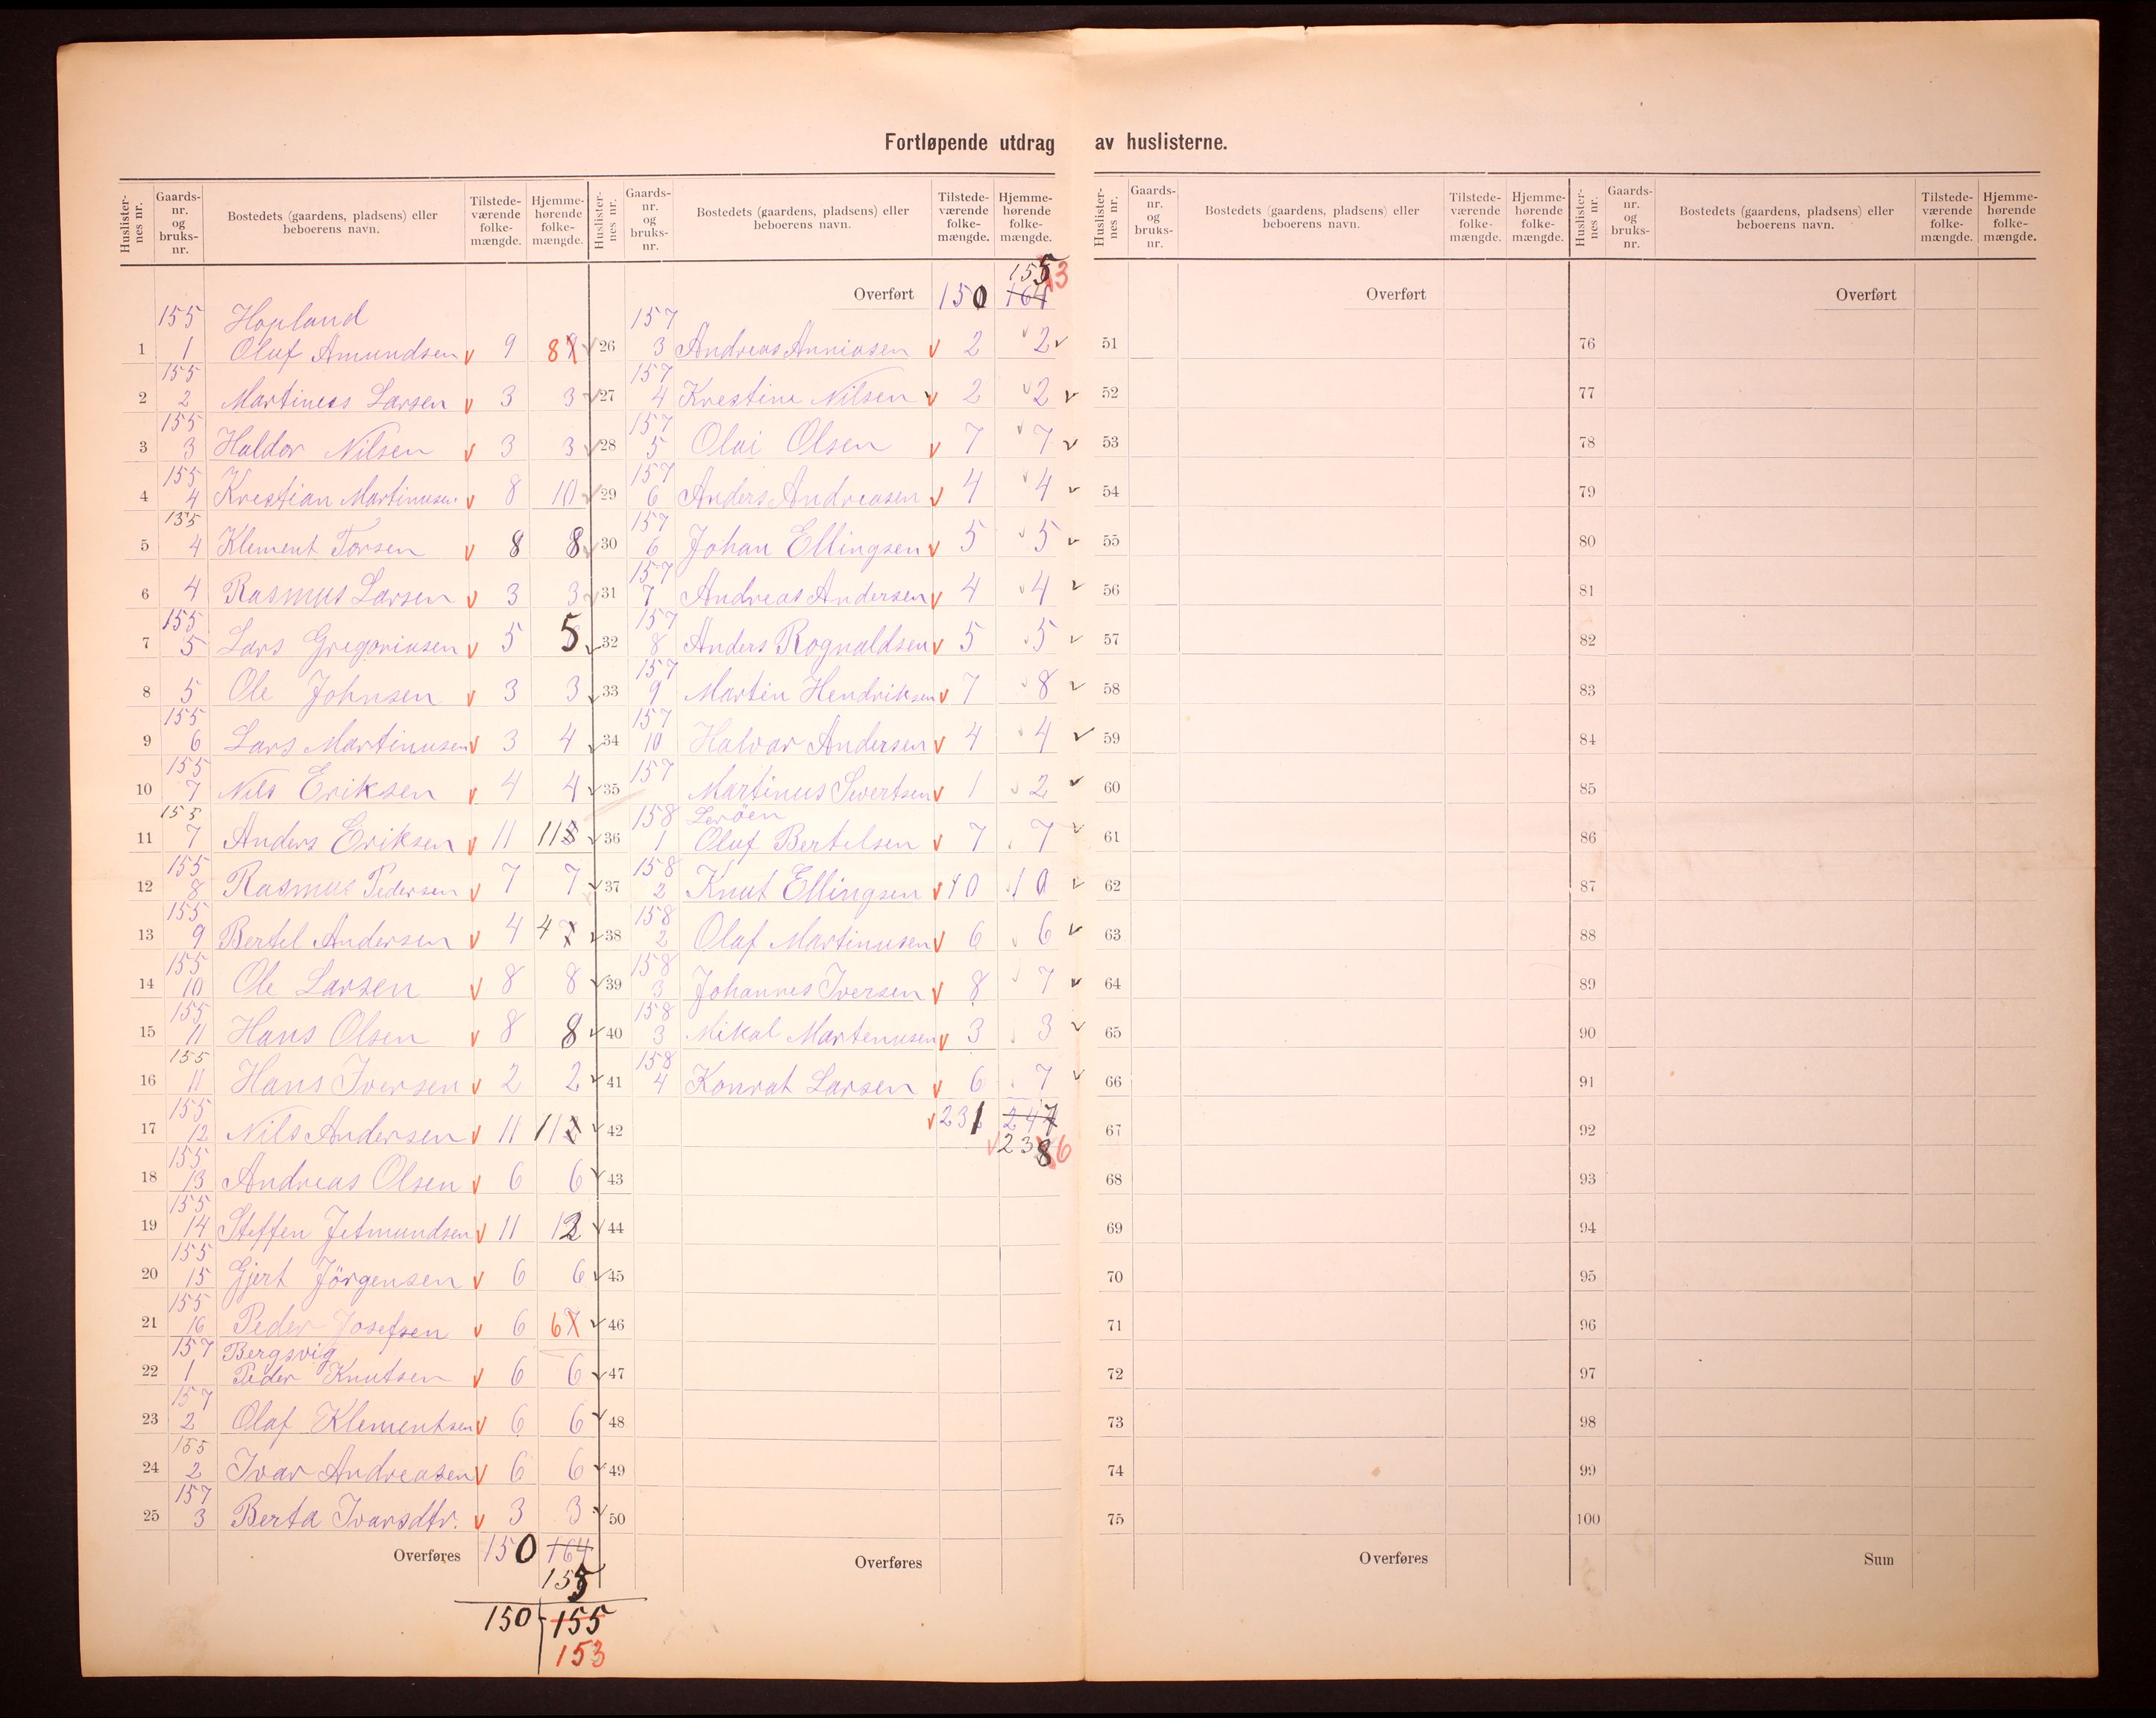 Fortløpende utdrag av huslisterne.
Huslister-nes nr. Gaards-nr. og bruks-nr. Bostedets (gaardens, pladsens) eller beboerens navn. Tilstede-værende folke-mængde. Hjemme-hørende folke-mængde.
155 Hopland
1 1 Oluf Amundsen 9 8
155
2 2 Martines Larsen 3 3
155
3 3 Haldor Nilsen 3 3
155
4 4 Krestian Martinusen 8 10
155
5 4 Klement Torsen 8 8
6 4 Rasmus Larsen 3 3
155
7 5 Lars Gregoriusen 5 5
8 5 Ole Johnsen 3 3
155
9 6 Lars Martinusen 3 4
155
10 7 Nils Eriksen 4 4
155
11 7 Anders Eriksen 11 11
155
12 8 Rasmus Pedersen 7 7
155
13 9 Bertel Andersen 4 4
155
14 10 Ole Larsen 8 8
155
15 11 Hans Olsen 8 8
155
16 11 Hans Iversen 2 2
155
17 12 Nils Andersen 11 11
155
18 13 Andreas Olsen 6 6
155
19 14 Steffen Jetmundsen 11 12
155
20 15 Gjert Jörgensen 6 6
155
21 16 Peder Josefsen 6 6
157 Bergsvig
22 1 Peder Knutsen 6 6
157
23 2 Olaf Klementsen 6 6
155
24 2 Ivar Andreasen 6 6
157
25 3 Berta Ivarsdtr. 3 3
Overføres 150 164
155
150 155
153
Huslister-nes nr. Gaards-nr. og bruks-nr. Bostedets (gaardens, pladsens) eller beboerens navn. Tilstede-værende folke-mængde. Hjemme-hørende folke-mængde.
155 3
Overført 150 164
157
26 3 Andreas Anniasen 2 2
157
27 4 Krestine Nilsen 2 2
157
28 5 Olai Olsen 7 7
157
29 6 Anders Andreasen 4 4
157
30 6 Johan Ellingsen 5 5
157
31 7 Andreas Andersen 4 4
157
32 8 Anders Rognaldsen 5 5
157
33 9 Martin Hendriksen 7 8
157
34 10 Halvar Andersen 4 4
157
35 Martinus Sivertsen 1 2
158 Leröen
36 1 Oluf Bertelsen 7 7
158
37 2 Knut Ellingsen 10 10
158
38 2 Olaf Martinusen 6 6
158
39 3 Johannes Iversen 8 7
158
40 3 Mikal Martenusen 3 3
158
41 4 Konrat Larsen 6 7
42 231 247
238 6
43
44
45
46
47
48
49
50
Overføres
Huslister-nes nr. Gaards-nr. og bruks-nr. Bostedets (gaardens, pladsens) eller beboerens navn. Tilstede-værende folke-mængde. Hjemme-hørende folke-mængde.
Overført
51
52
53
54
55
56
57
58
59
60
61
62
63
64
65
66
67
68
69
70
71
72
73
74
75
Overføres
Huslister-nes nr. Gaards-nr. og bruks-nr. Bostedets (gaardens, pladsens) eller beboerens navn. Tilstede-værende folke-mængde. Hjemme-hørende folke-mængde.
Overført
76
77
78
79
80
81
82
83
84
85
86
87
88
89
90
91
92
93
94
95
96
97
98
99
100
Sum